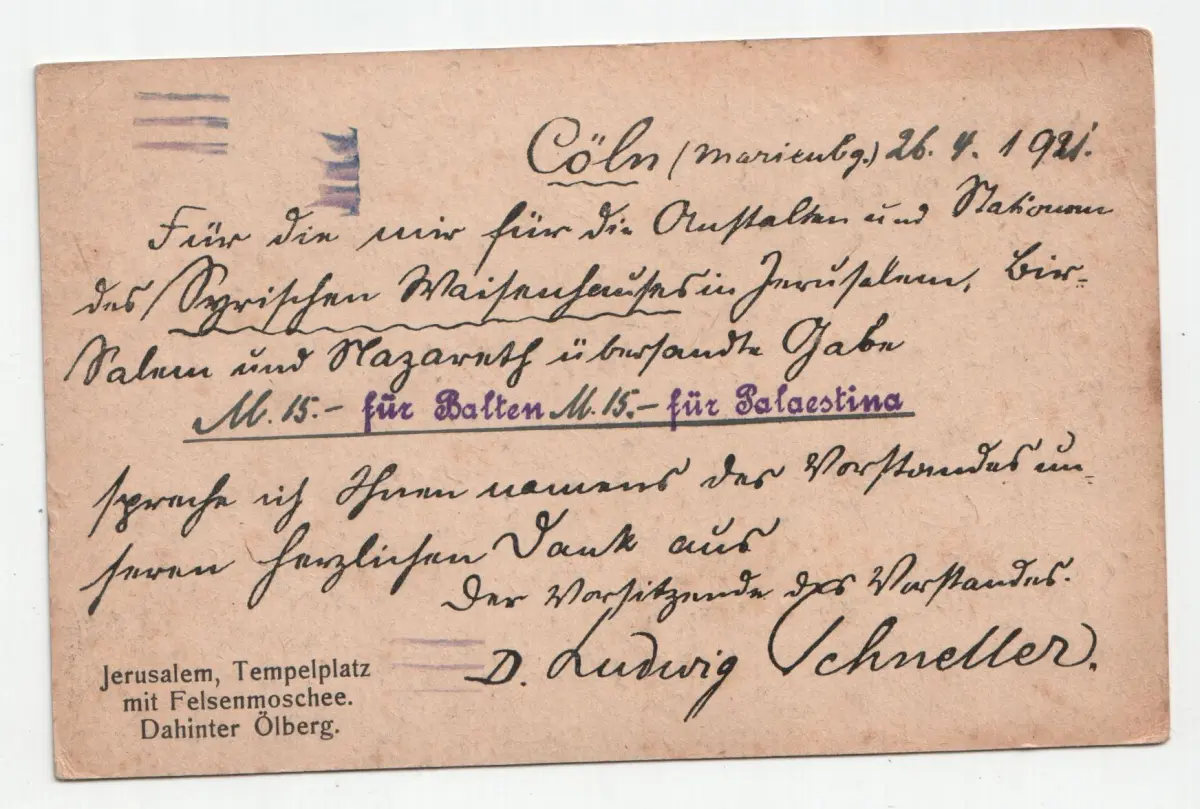 Cöln (Marienbg.) 26. 4. 1921.
Für die mir für die Anstalten und Stationen
des Syrischen Waisenhauses in Jerusalem, Bir-
Salem und Nazareth übersandte Gabe
M. 15.- für Balten M. 15.- für Palaestina
spreche ich Ihnen namens des Vorstandes un-
seren herzlichen Dank aus
Der Vorsitzende des Vorstandes.
D. Ludwig Schneller.
Jerusalem, Tempelplatz
mit Felsenmoschee.
Dahinter Ölberg.